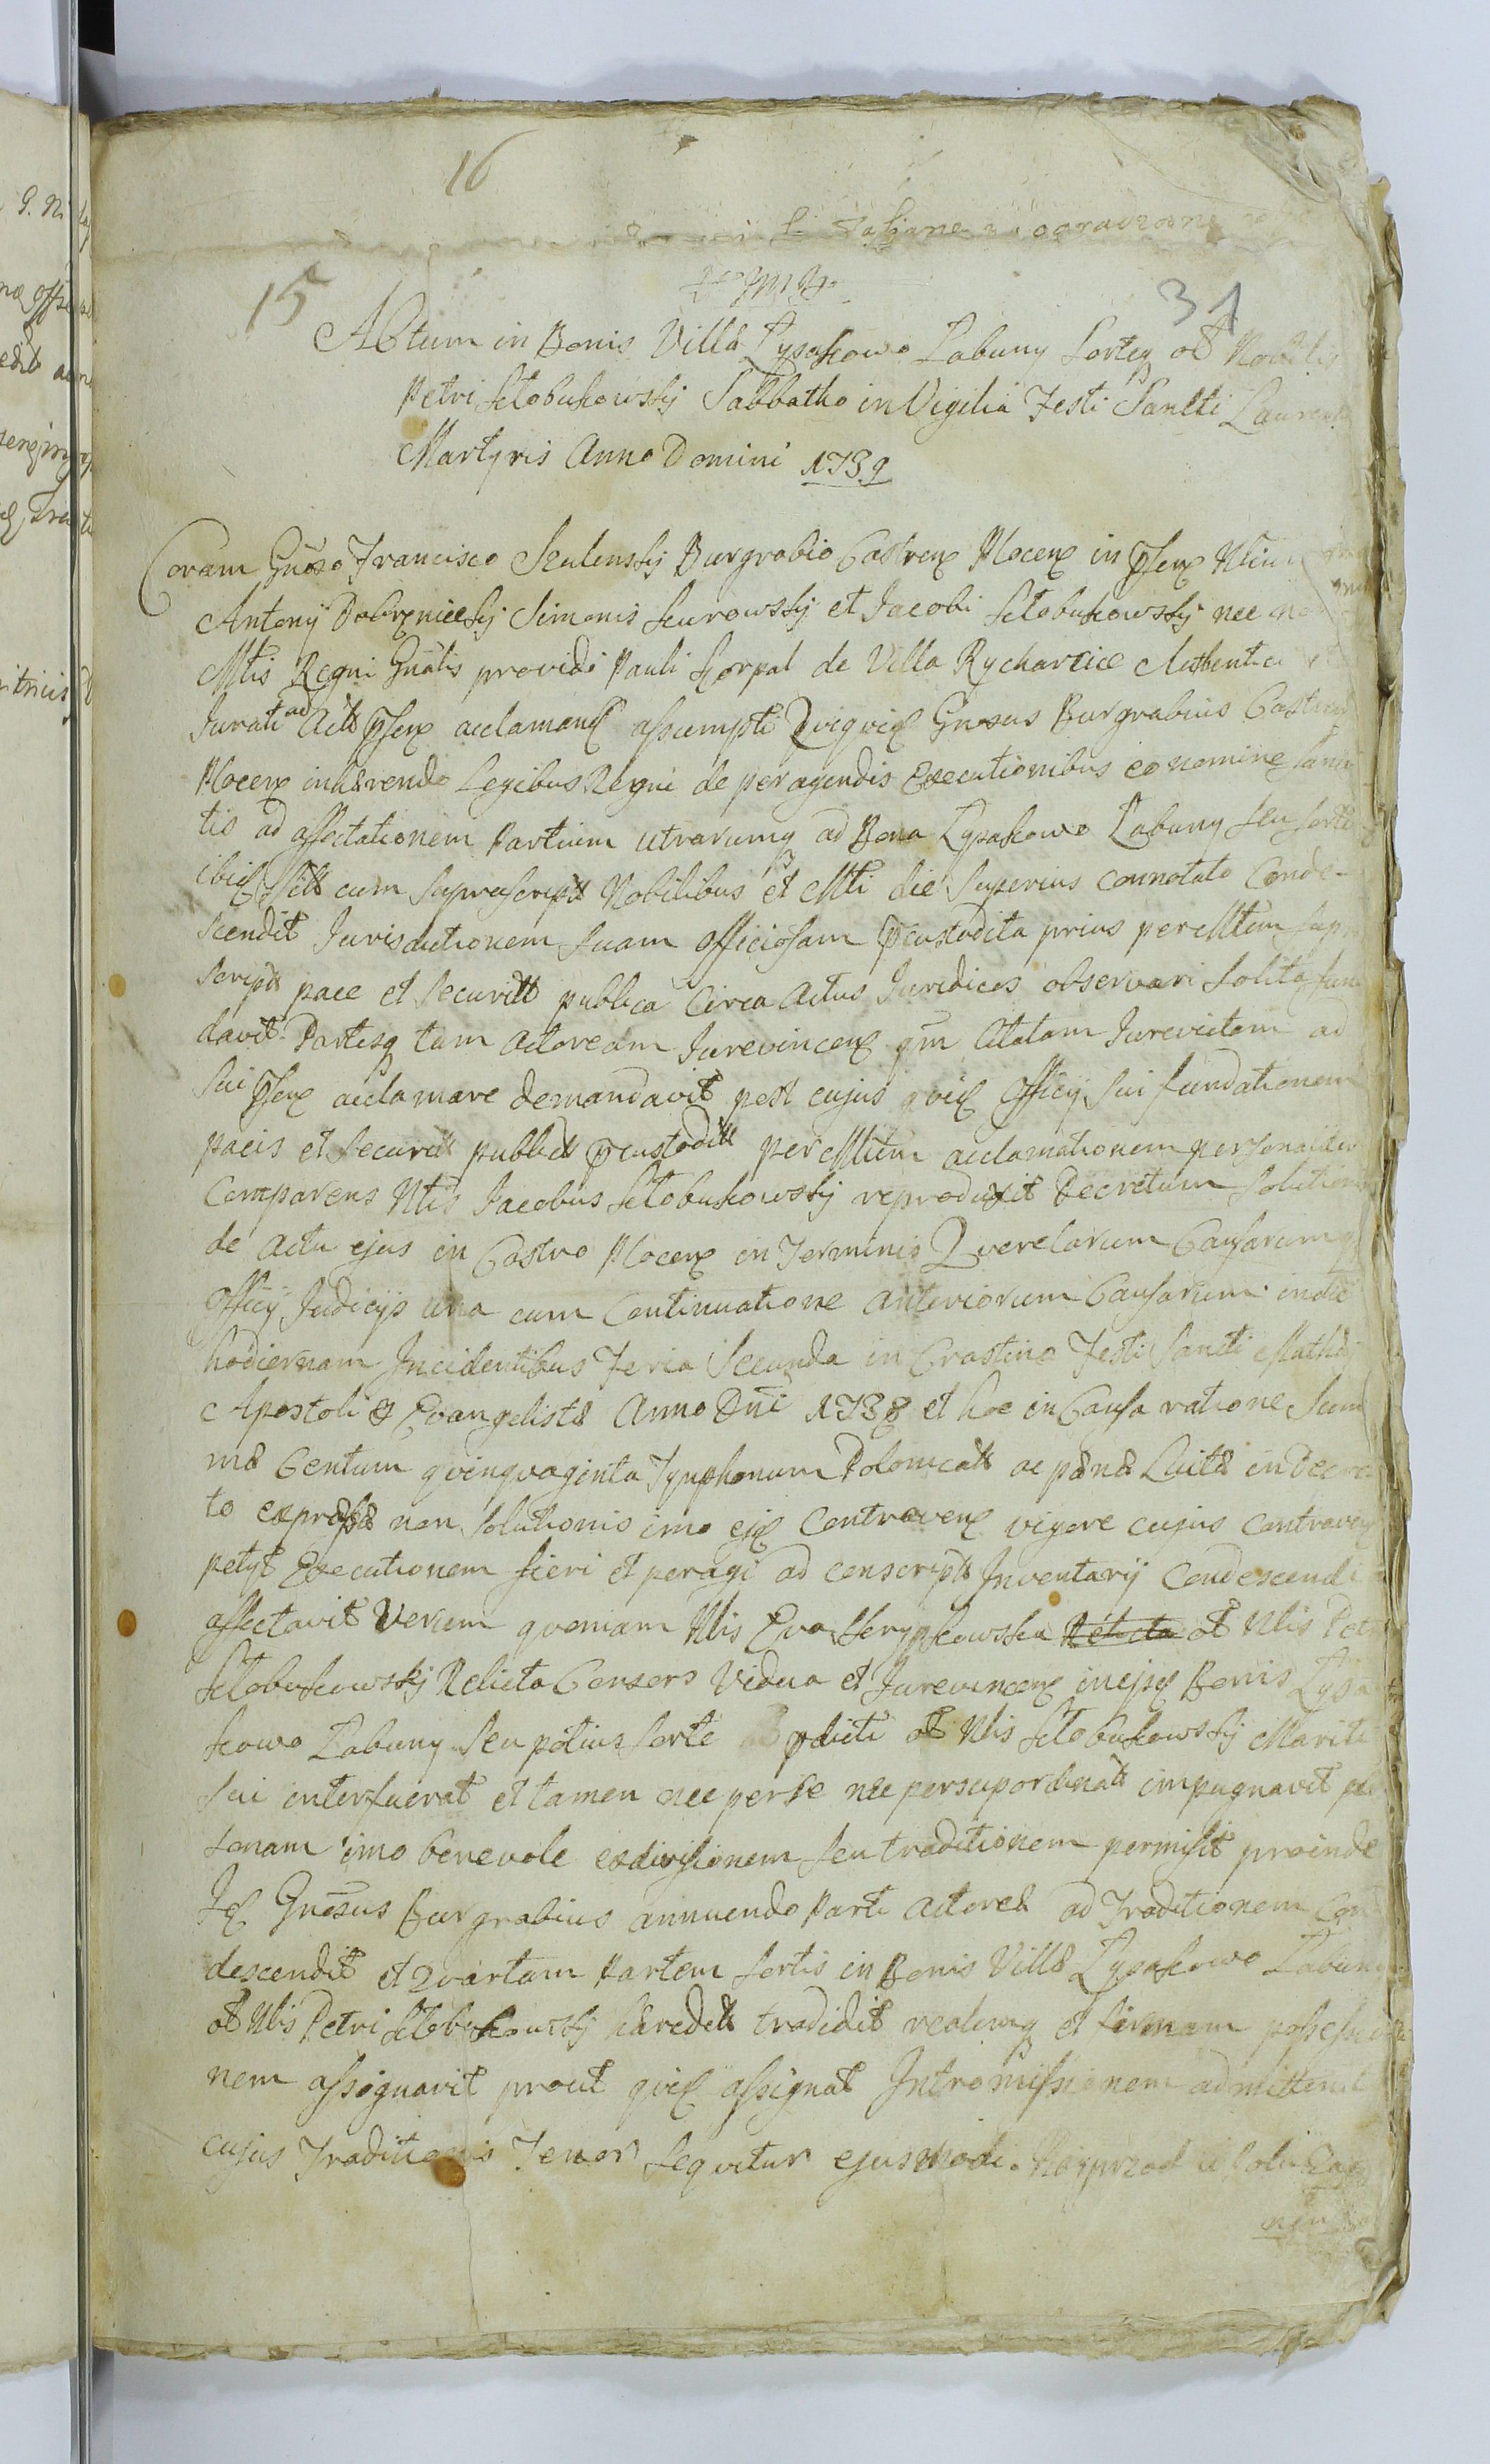 16
15
31
Actum in Bonis Villæ Łysakowo Łabuny Sorteq olt Nobilis
Petri Słobukowsky Sabbatho in Vigilia Festi Sancti Laurenty
Martyris Anno Domini 1739
Coram Gnoso Francisco Szulensky Burgrabio Castren Plocen in Psen Nlium
Antony Dobrzniecky Simonis Scurowsky et Jacobi Słobukowsky nec non
Mtis Regni Gnalis providi Pauli Korpal de Villa Rycharcice Authentici et
Jurati ad Act Psen acclamand assumpti Qviqvid Gnosus Burgrabius Castren
Plocen inhærendo Legibus Regni de peragendis Executionibus eo nomine sanci
tis ad affectationem Partium utrarumq ad Bona Łysakowo Łabuny seu Sorte
ibid sitt cum suprascript Nobilibus et Mti die superius connotato Conde-
scendit Jurisdictionem suam officiosam Pcustodita prius per Mtem supra
script pace et securitt publica circa Actus Juridicos observari solita fun
davit Partesq tam Actoream Jurevincen qm Citatam Jurevictam ad
sui Psen acclamare demandavit post cujus qvid Officy sui fundationem
pacis et securitt publicæ Pcustodit per Mtem acclamationem personaliter
Comparens Nlis Jacobus Słobukowsky reproduxit Decretum Solutionis
de actu ejus in Castro Plocen in Terminis Qverelarum Causarum q
Officy Judicijs una cum Continuatione anteriorum Causarum in die
hodiernam Incidentibus Feria Secunda in Crastino Festi Sancti Mathæi
Apostoli et Evangelistæ Anno Dni 1738 et hoc in Causa ratione Sum
mæ Centum qvinqvaginta Tynphonum Polonical ac pænæ Luitæ in Decre
to expressæ non solutionis imo ejq Contraven vigore cujus Contraven
petyt Executionem fieri et peragi ad conscript Inventarij Condescendi
affectavit Verum qvoniam Nlis Eva Skrypkowska Relicta olt Nlis Petri
Słobukowsky Relicta Consors Vidua et Jurevincen in ejsq Bonis Łysa
kowo Łabuny seu potius Sorte pdicti olt Nlis Słobukowsky Mariti
sui interfuerat et tamen nec per se nec per supordinat impugnavit per
sonam imo benevole exdivisionem seu traditionem permisit proinde
Id Gnosus Burgrabius annuendo Parti Actoreæ ad Traditionem Con
descendit et Qvartam Partem Sortis in Bonis Villæ Łysakowo Łabuny
olt Nlis Petri Słobukowsky hæredit tradidit realemq et firmam possessio
nem assignavit prout qvid assignat Intromissionem admittend
cujus Traditionis Tenor Seqvitur ejusmodi. Nayprzod